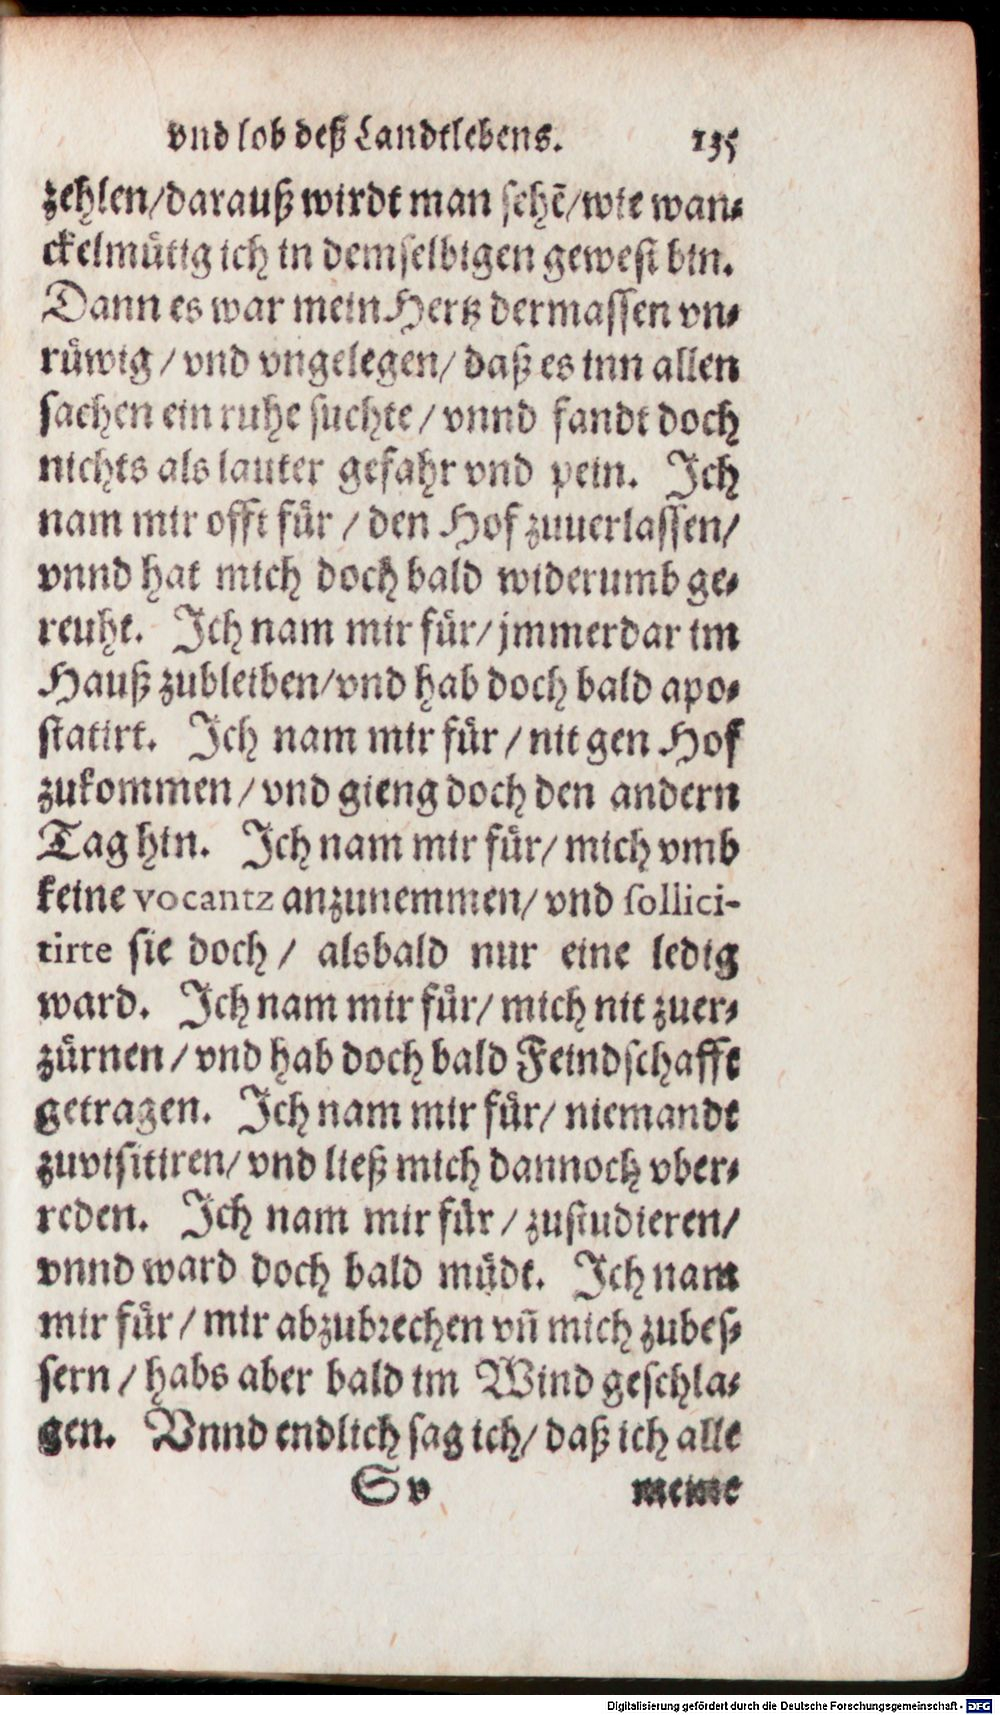 vnd lob deß Landtlebens. 135
zehlen/darauß wirdt man sehē/wie wan-
ckelmütig ich in demselbigen gewest bin.
Dann es war mein Hertz dermassen vn-
rüwig / vnd vngelegen/ daß es inn allen
sachen ein ruhe suchte / vnnd fandt doch
nichts als lauter gefahr vnd pein. Ich
nam mir offt für / den Hof zuuerlassen/
vnnd hat mich doch bald widerumb ge-
reuht. Ich nam mir für/ jmmerdar im
Hauß zubleiben/vnd hab doch bald apo-
statirt. Ich nam mir für / nit gen Hof
zukommen / vnd gieng doch den andern
Tag hin. Ich nam mir für/ mich vmb
keine vocantz anzunemmen/ vnd sollici-
tirte sie doch / alsbald nur eine ledig
ward. Ich nam mir für/ mich nit zuer-
zürnen / vnd hab doch bald Feindschafft
getragen. Ich nam mir für/ niemandt
zuvisitiren/ vnd ließ mich dannoch vber-
reden. Ich nam mir für / zustudieren/
vnnd ward doch bald müdt. Ich nam
mir für / mir abzubrechen vñ mich zubes-
sern / habs aber bald im Wind geschla-
gen. Vnnd endlich sag ich/ daß ich alle
S v meine
Digitalisierung gefördert durch die Deutsche Forschungsgemeinschaft - DFG